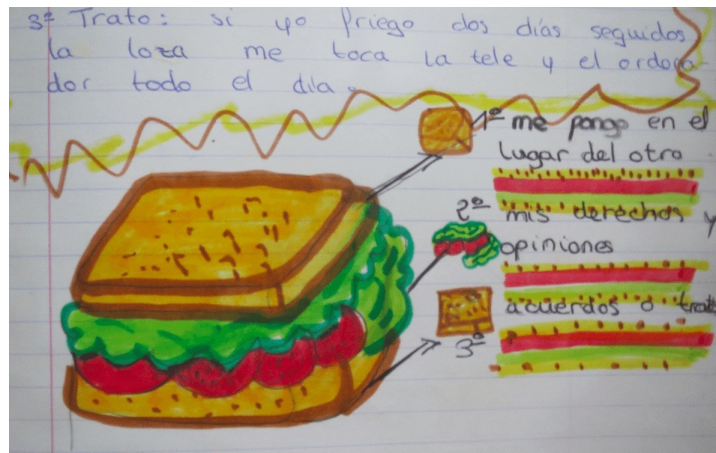 3º Trato: si yo friego dos días seguidos
la loza me toca la tele y el ordopa-
dor todo el dila.
1º me pongo en el
lugar del otro
2º mis derechos y
opiniones
acuerdos o trat
3º